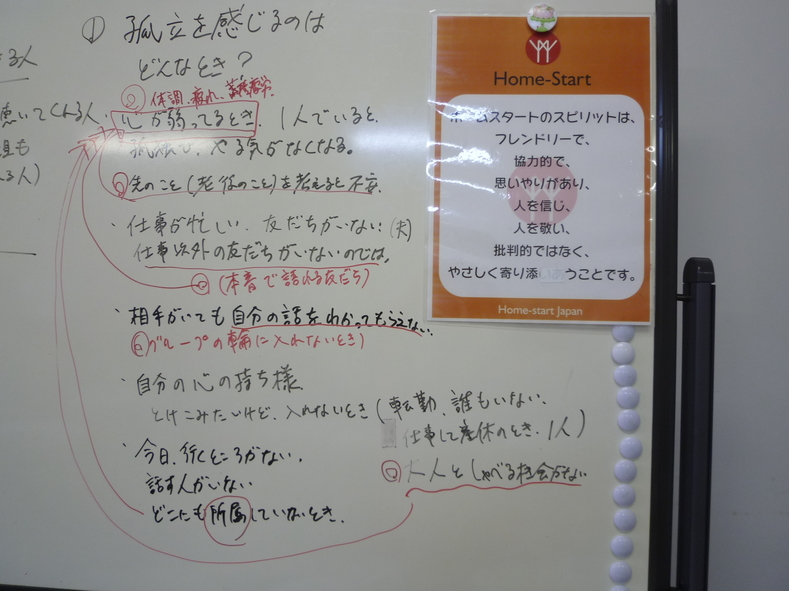 ① 孤立を感じるのは
どんなとき?
② 体調、疲れ、
心が弱ってるとき、1人でいると、
孤独で、やる気がなくなる。
先のこと(老後のこと)を考えると不安
・仕事が忙しい、友だちがいない(夫)
仕事以外の友だちがいないのでは、
(本音で語れる友だち)
・相手がいても自分の話をわかってもらえない。
グループの輪に入れないとき)
・自分の心の持ち様
とけこみたいけど、入れないとき(転勤、誰もいない、
仕事して産休のとき、1人)
・今日、行くところがない、
話す人がいない
大人としゃべる機会がない
どこにも所属していないとき、
る人
聴いてくれる人
も
る人)
Home-Start
ホームスタートのスピリットは、
フレンドリーで、
協力的で、
思いやりがあり、
人を信じ、
人を敬い、
批判的ではなく、
やさしく寄り添いあうことです。
Home-start Japan